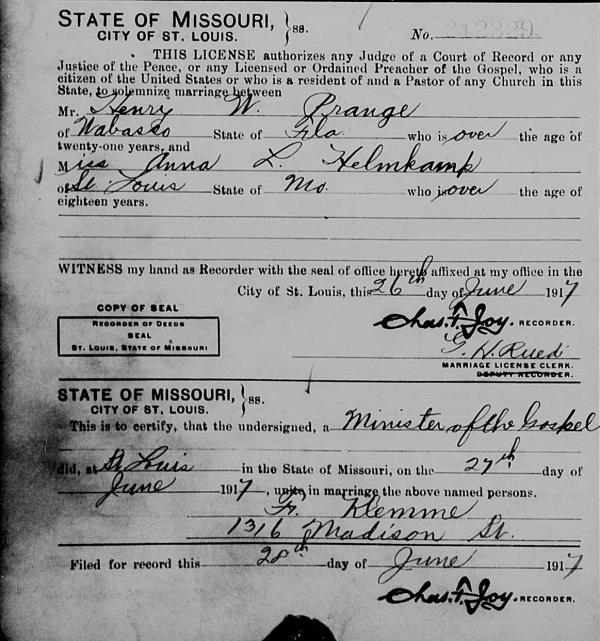 STATE OF MISSOURI, } ss.
CITY OF ST. LOUIS.
No. 212329
THIS LICENSE authorizes any Judge of a Court of Record or any
Justice of the Peace, or any Licensed or Ordained Preacher of the Gospel, who is a
citizen of the United States or who is a resident of and a Pastor of any Church in this
State, to solemnize marriage between
Mr. Henry W. Prange
of Wabasso State of Fla who is over the age of
twenty-one years, and
Miss Anna L. Helmkamp
of St. Louis State of Mo. who is over the age of
eighteen years.
WITNESS my hand as Recorder with the seal of office hereto affixed at my office in the
City of St. Louis, this 26th day of June 1917
COPY OF SEAL
RECORDER OF DEEDS
SEAL
ST. LOUIS, STATE OF MISSOURI
Chas. F. Joy. RECORDER.
G. H. Ruedi
MARRIAGE LICENSE CLERK.
DEPUTY RECORDER.
STATE OF MISSOURI, } ss.
CITY OF ST. LOUIS.
This is to certify, that the undersigned, a Minister of the Gospel
did, at St Louis in the State of Missouri, on the 27th day of
June 1917, unite in marriage the above named persons.
Fr. Klemme
1316 Madison St.
Filed for record this 28th day of June 1917
Chas. F. Joy. RECORDER.